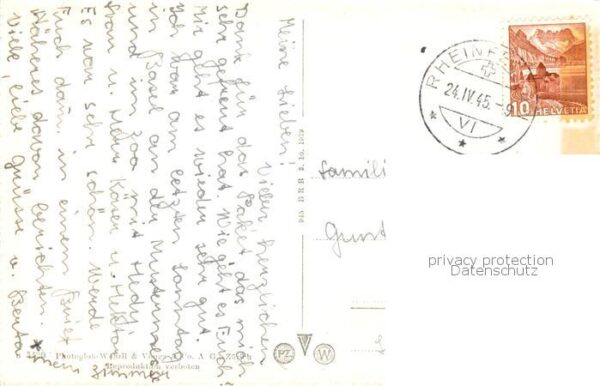 Meine Lieben!
Vielen herzlichen
Dank für das Paket das mich
sehr gefreut hat. Wie geht es Euch?
Mir geht es wieder sehr gut.
Ich war am letzten Sonntag
in Basel an der Mustermesse
und im Zoo mit Hedy,
Frau u. Herr Käser u. Hektor.
Es war sehr schön. Werde
Euch dann in einem Brief
Näheres davon berichten.
Viele liebe Grüsse u.
Berta
* mein Zimmer
945 BRB 3. 10. 1939
Photoglob-Wehrli & Vouga & Co. A G. Zürich
Reproduktion verboten
PZ W
RHEINF
24.IV.45.-9
VI
10 HELVETIA
Famili
Gunt
privacy protection
Datenschutz